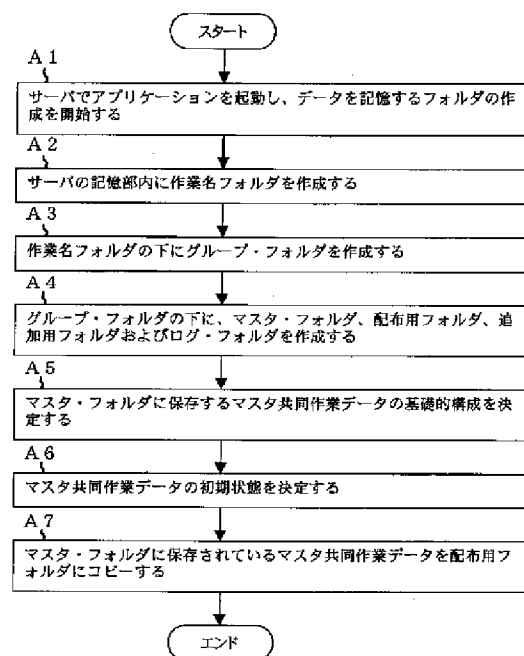 スタート
A1
サーバでアプリケーションを起動し、データを記憶するフォルダの作
成を開始する
A2
サーバの記憶部内に作業名フォルダを作成する
A3
作業名フォルダの下にグループ・フォルダを作成する
A4
グループ・フォルダの下に、マスタ・フォルダ、配布用フォルダ、追
加用フォルダおよびログ・フォルダを作成する
A5
マスタ・フォルダに保存するマスタ共同作業データの基礎的構成を決
定する
A6
マスタ共同作業データの初期状態を決定する
A7
マスタ・フォルダに保存されているマスタ共同作業データを配布用フ
ォルダにコピーする
エンド